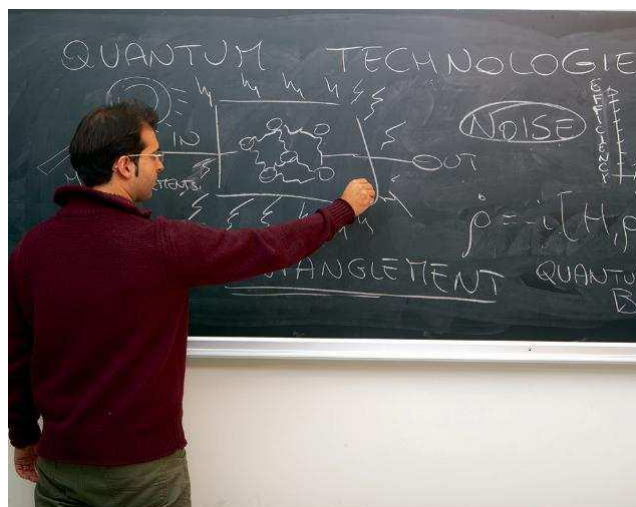 QUANTUM TECHNOLOGIE
IN
NOISE
EFFICIENCY
OUT
ρ̇=-i[H,ρ
TANGLEMENT
QUANTU